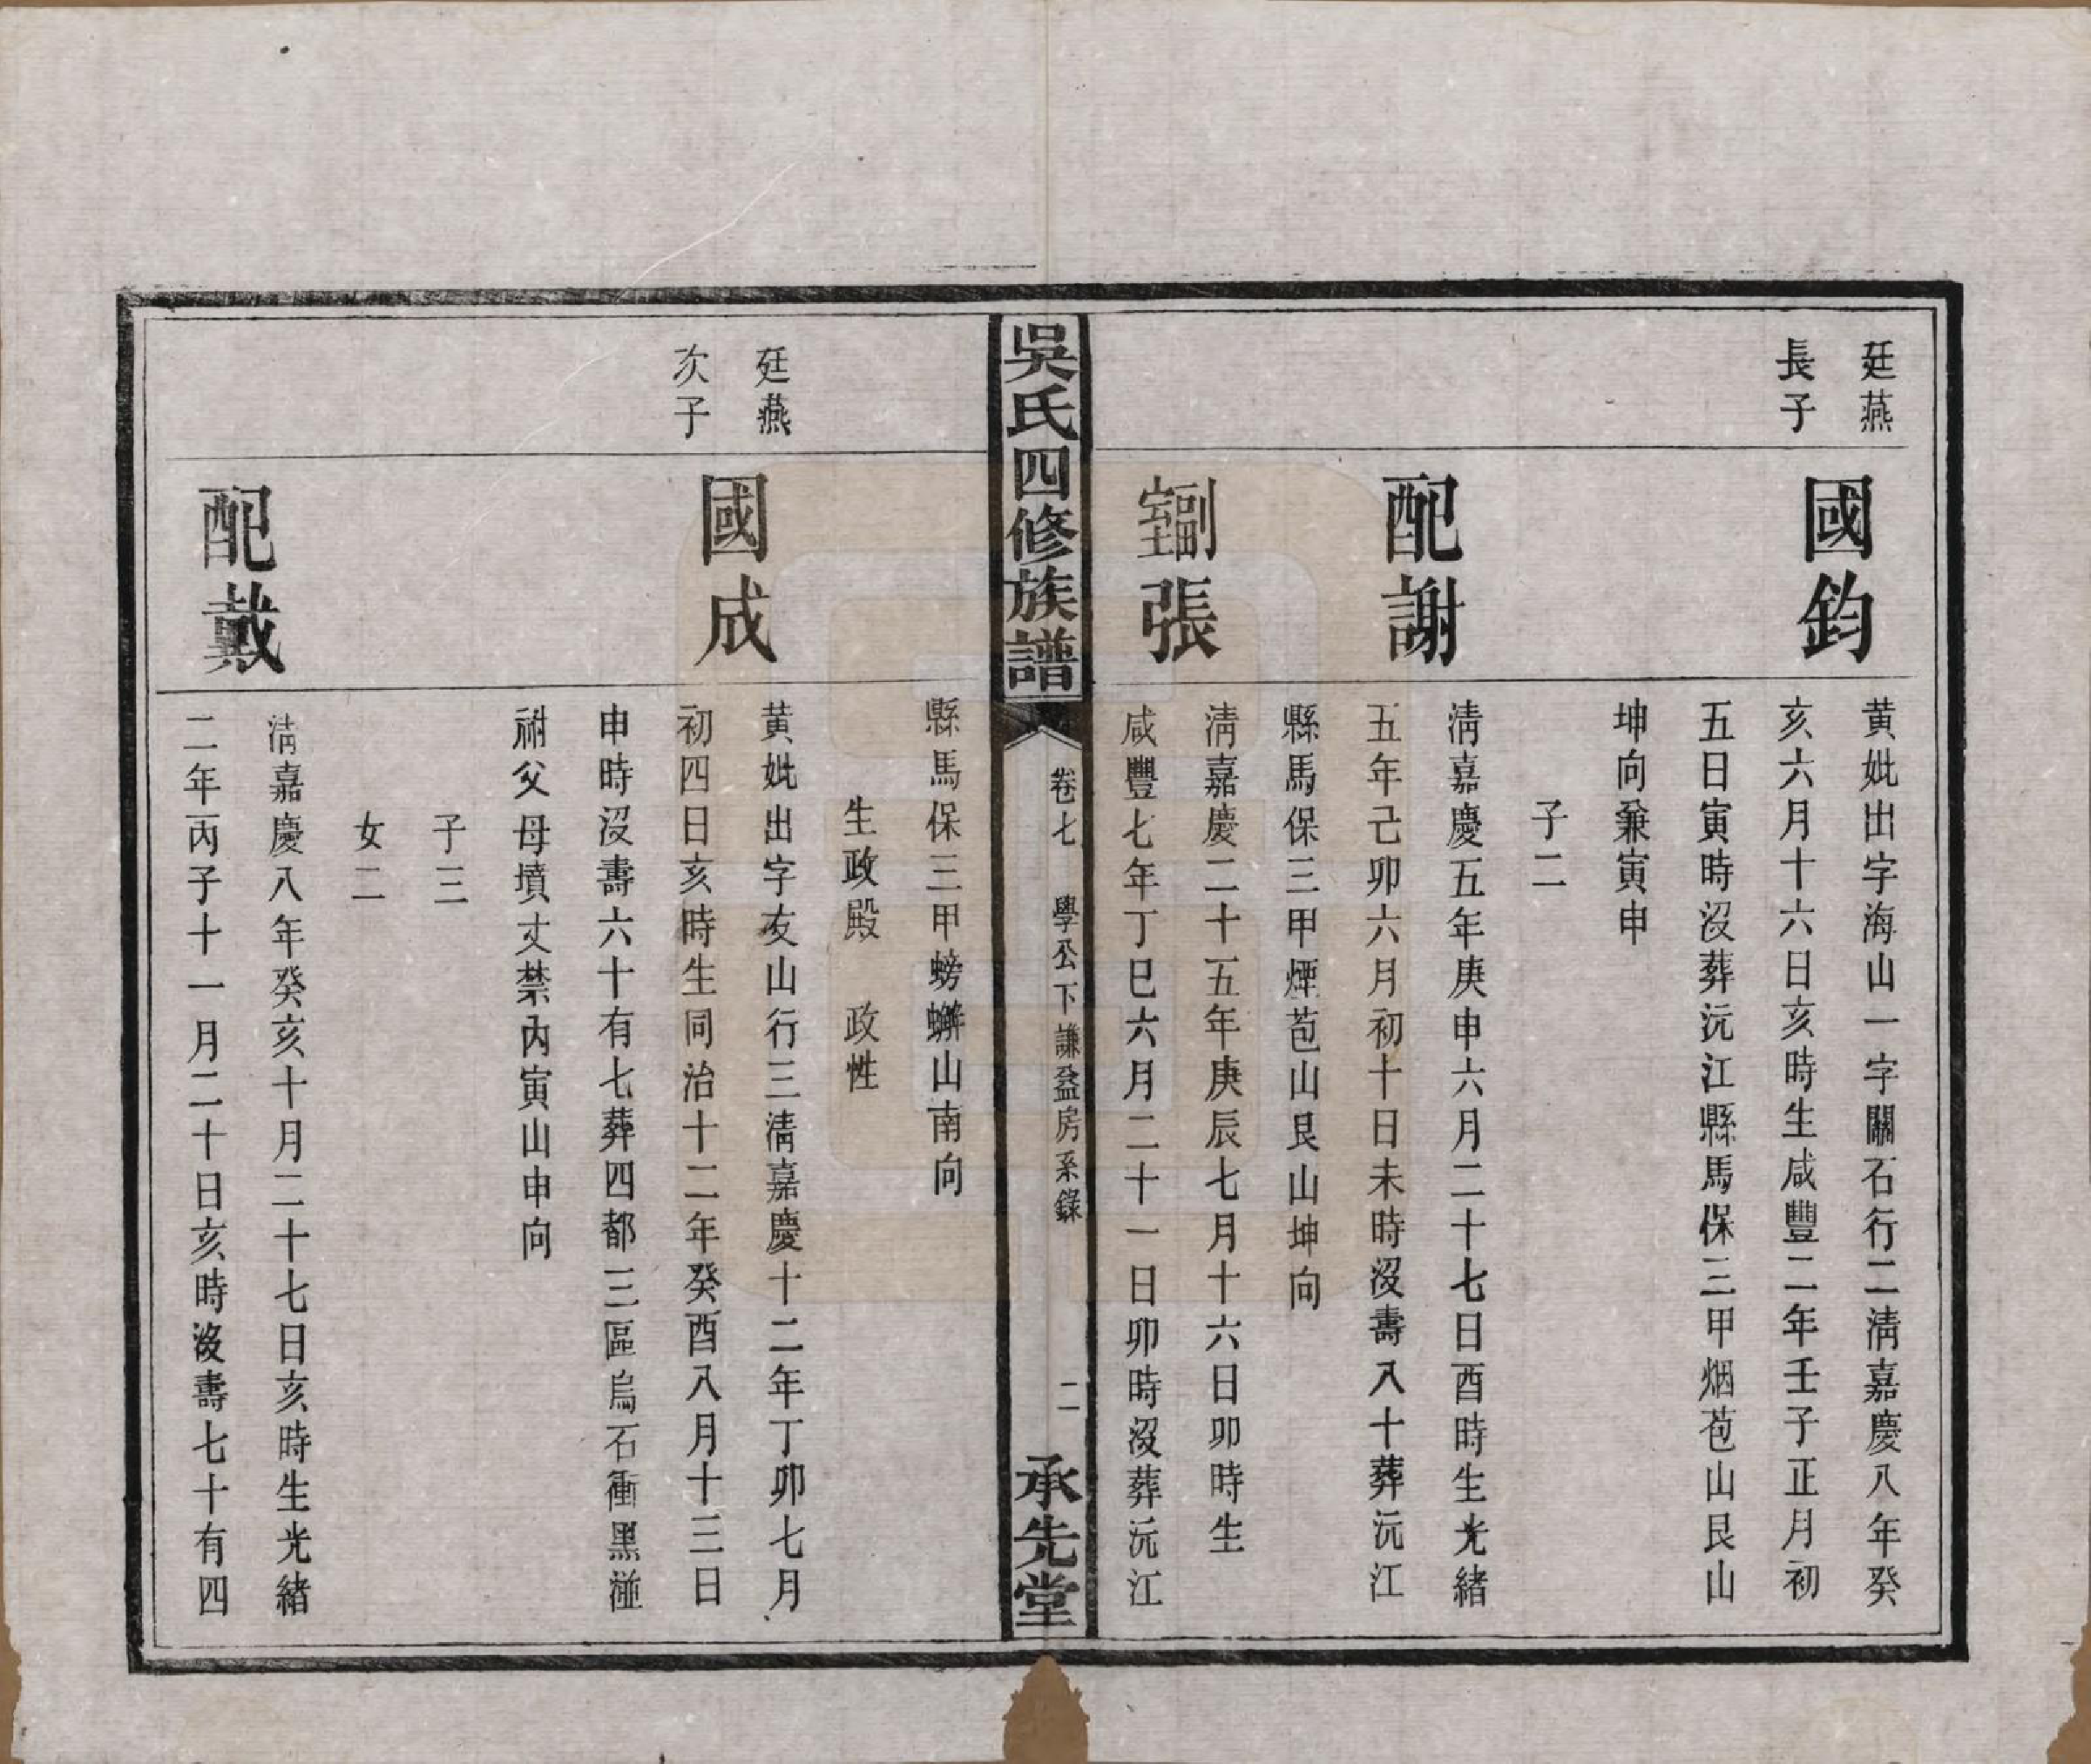 廷燕
長子
國鈞
黄妣出字海山一字關石行二淸嘉慶八年癸
亥六月十六日亥時生咸豐二年壬子正月初
五日寅時沒葬沅江縣馬保三甲烟苞山艮山
坤向兼寅申
子二
配謝
淸嘉慶五年庚申六月二十七日酉時生光緒
五年己卯六月初十日未時沒壽八十葬沅江
縣馬保三甲煙苞山艮山坤向
副室張
淸嘉慶二十五年庚辰七月十六日卯時生
咸豐七年丁巳六月二十一日卯時沒葬沅江
吳氏四修族譜
卷七 學公下謙益房系錄
二
承先堂
縣馬保三甲螃蠏山南向
生政殿 政性
廷燕
次子
國成
黄妣出字友山行三淸嘉慶十二年丁卯七月
初四日亥時生同治十二年癸酉八月十三日
申時沒壽六十有七葬四都三區烏石衝黑𡎚
祔父母墳丈禁內寅山申向
子三
女二
配戴
淸嘉慶八年癸亥十月二十七日亥時生光緒
二年丙子十一月二十日亥時沒壽七十有四